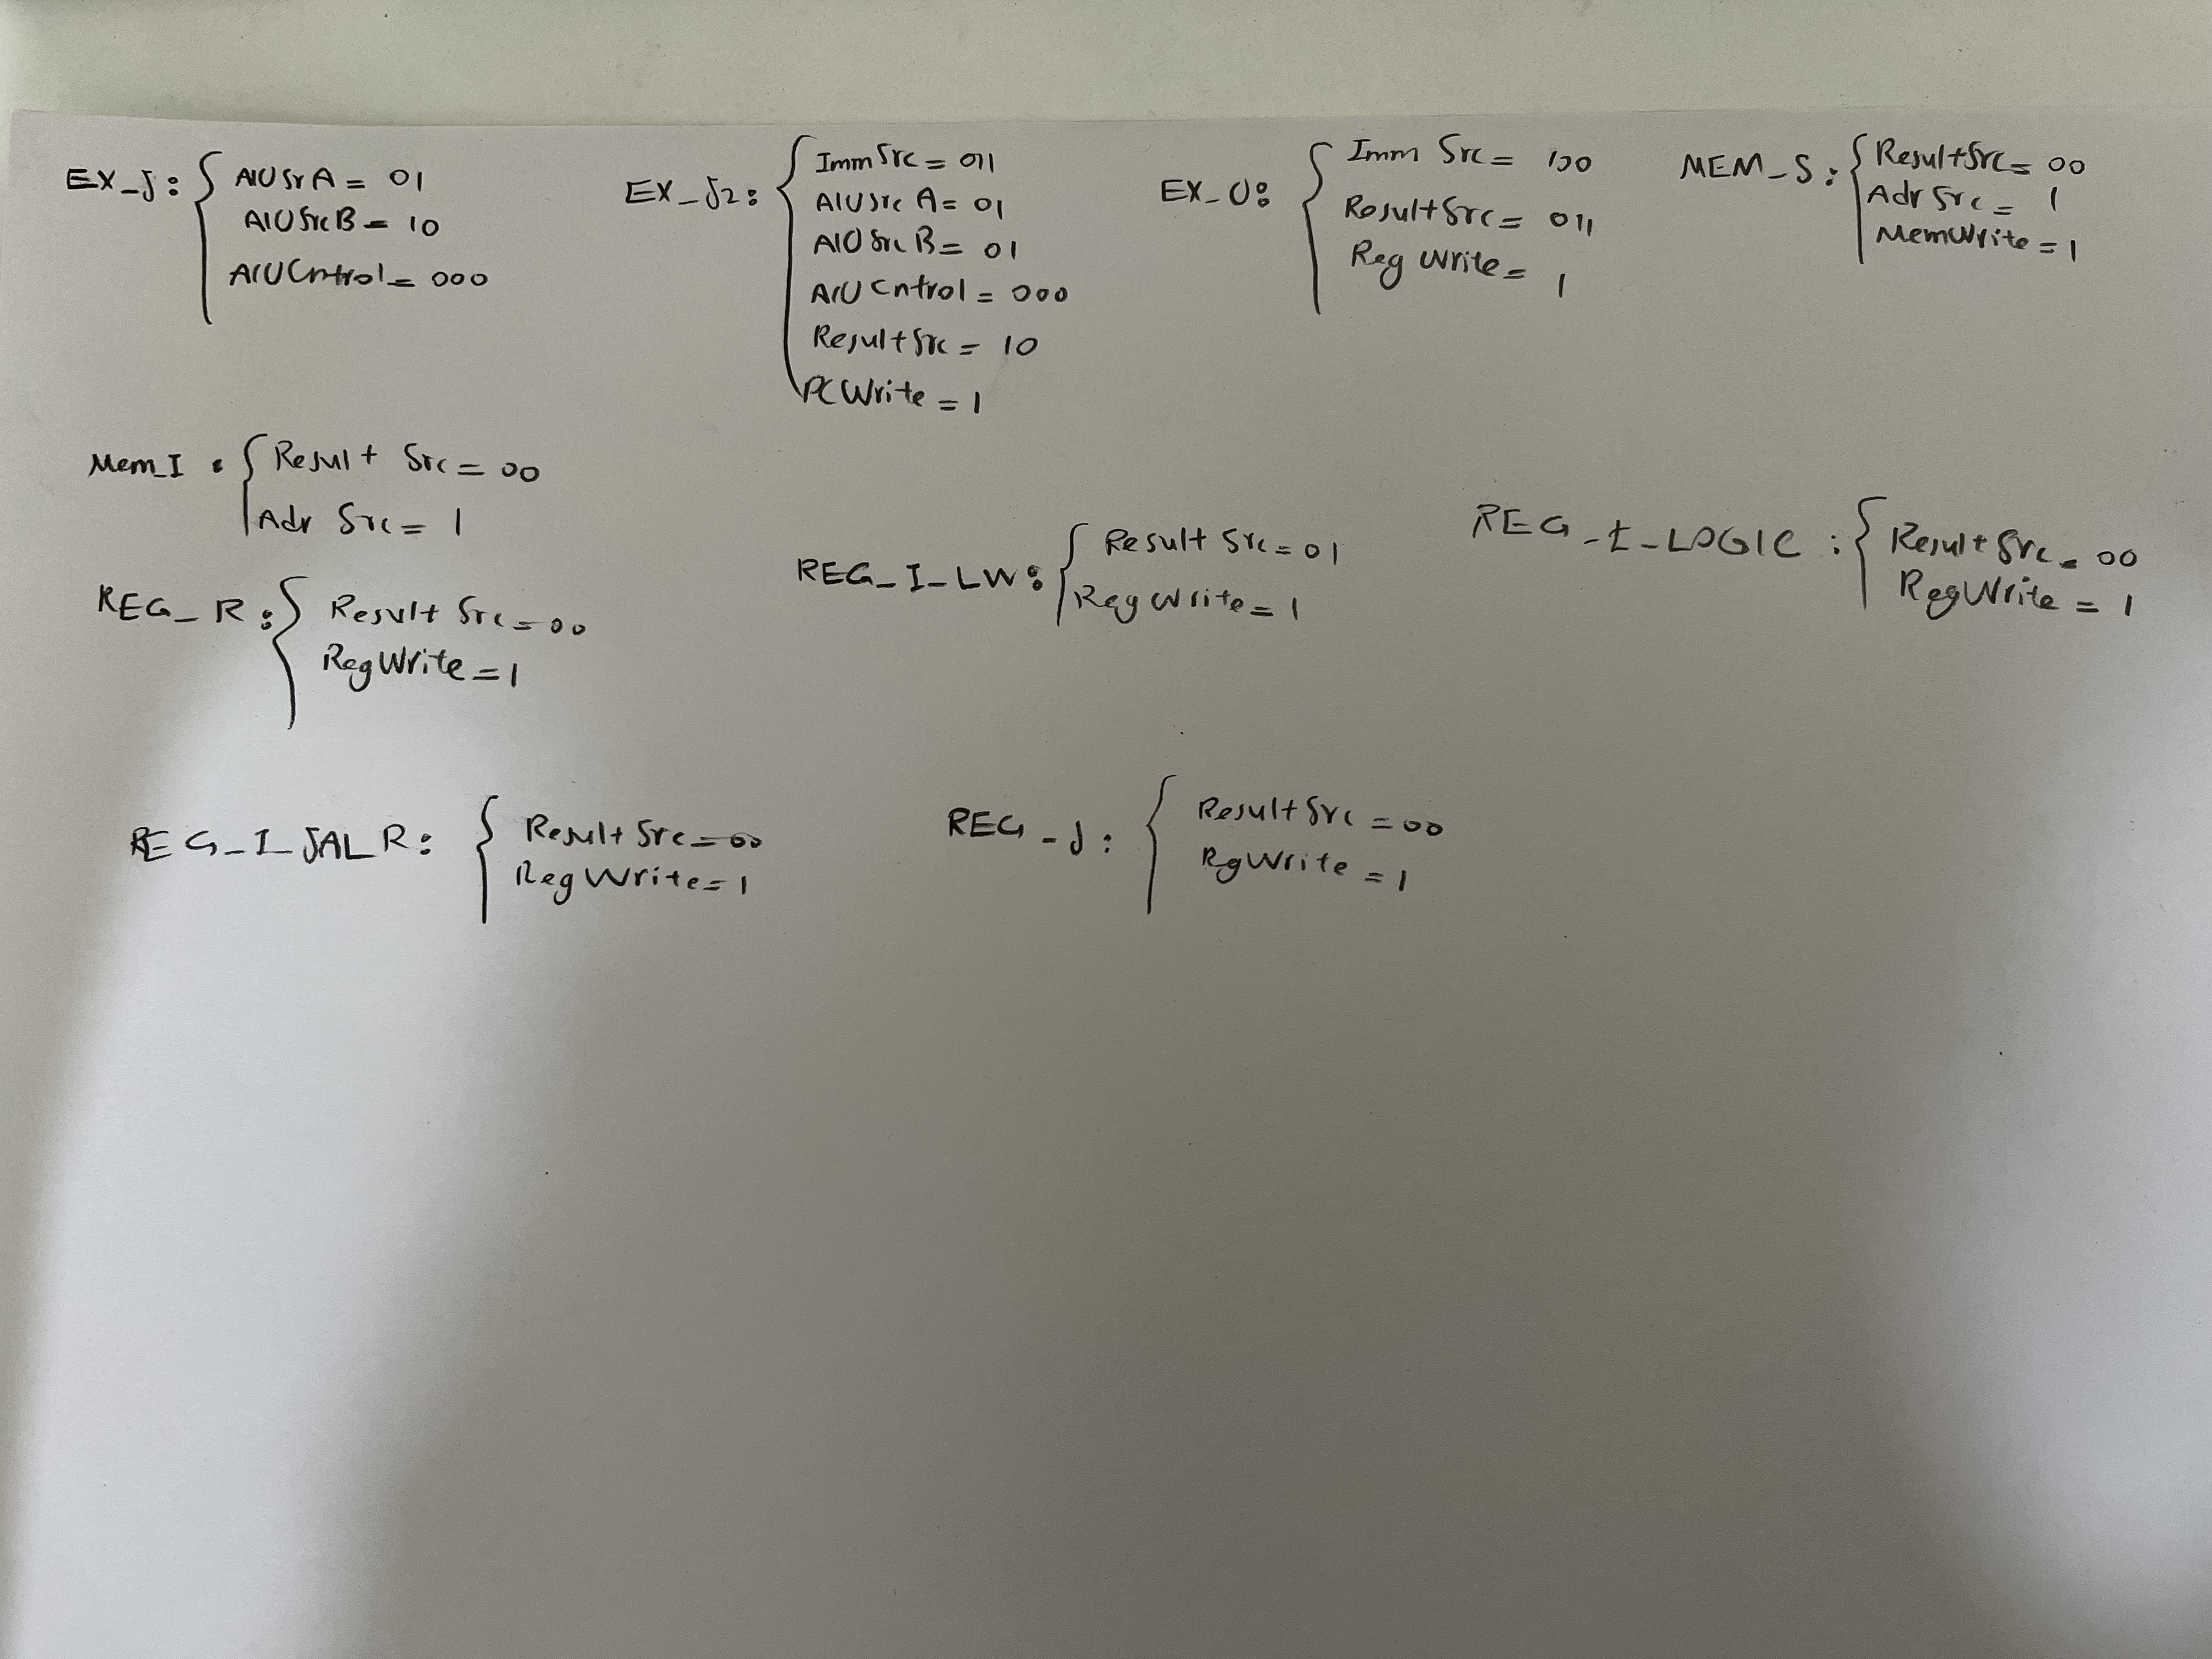 EX_J: { AlUSrA = 01
AlUSrcB = 10
AlUCntrol = 000
EX_J2: { ImmSrc = 011
AlUsrc A = 01
AlUSrc B = 01
AlU Cntrol = 000
ResultSrc = 10
PCWrite = 1
EX_U: { Imm Src = 100
ResultSrc = 011
Reg Write = 1
MEM_S: { ResultSrc = 00
Adr Src = 1
MemWrite = 1
Mem_I : { Result Src = 00
Adr Src = 1
REG_R: { Result Src = 00
RegWrite = 1
REG_I_LW: { Result Src = 01
Reg Write = 1
REG_I_LOGIC : { Result Src = 00
RegWrite = 1
REG_I_JALR: { Result Src = 00
Reg Write = 1
REG_J: { Result Src = 00
RgWrite = 1